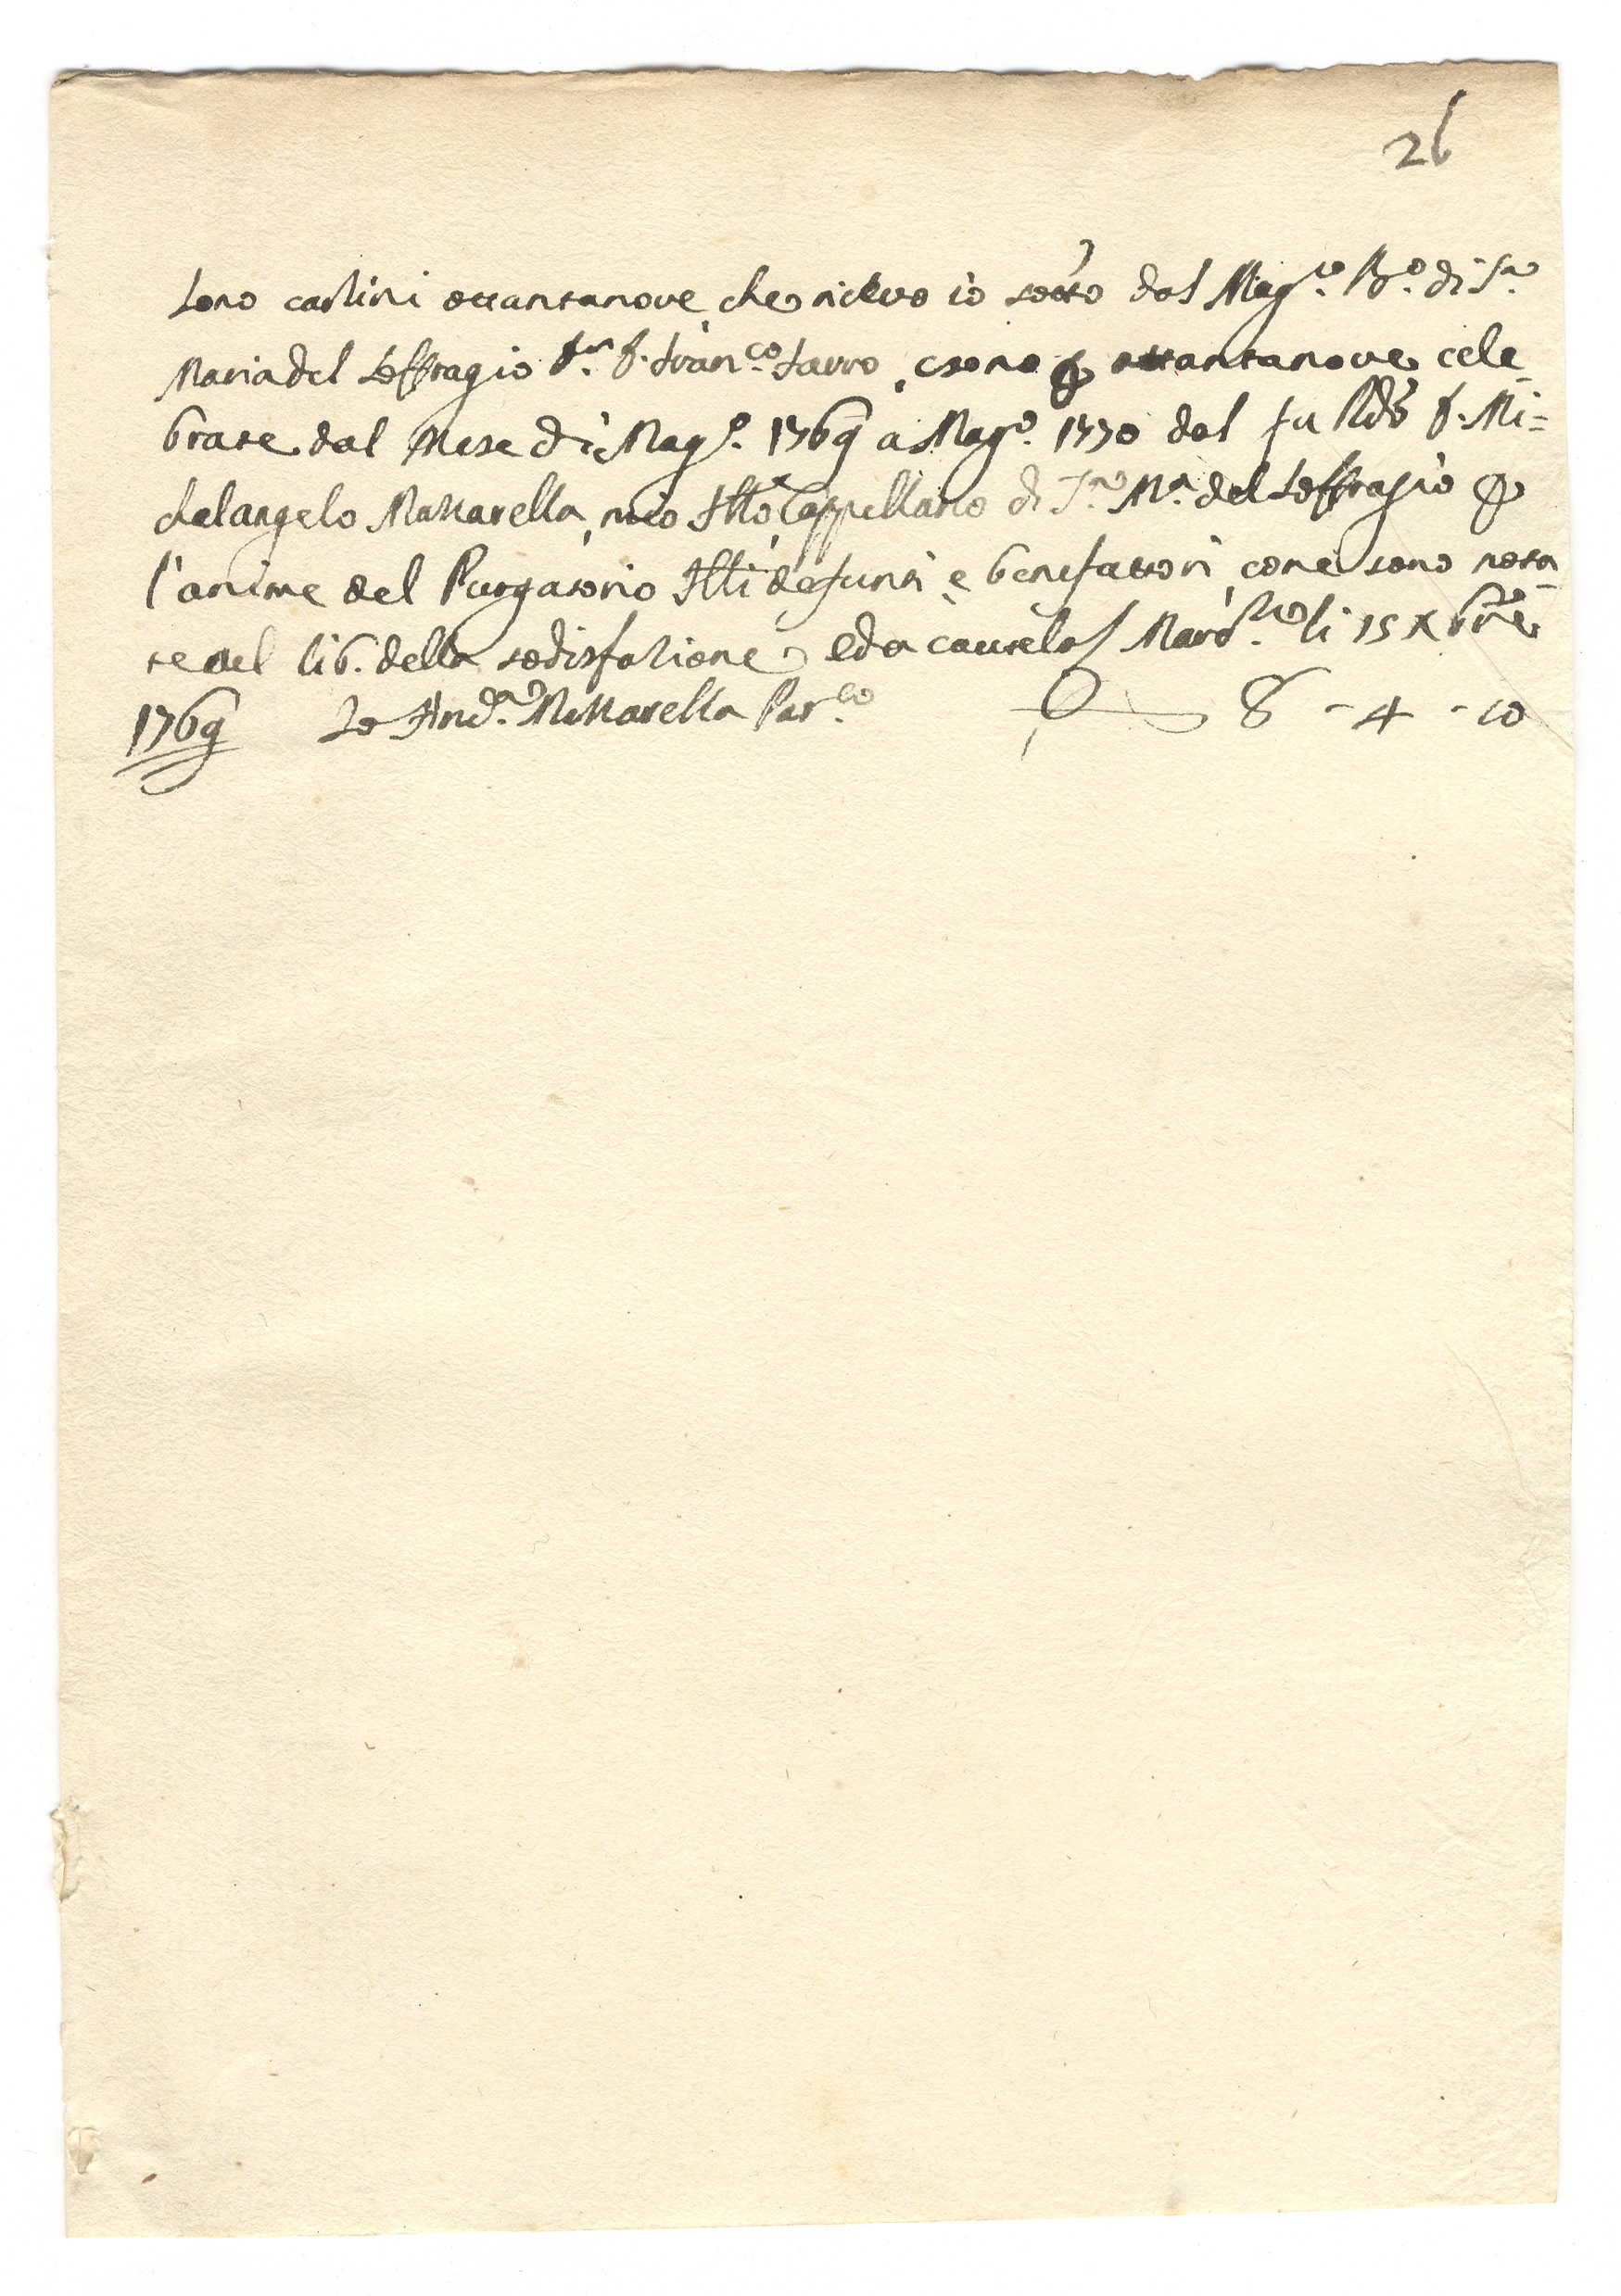 26
Sono carlini ottantanove, che ricevo io sotto dal Mag.co Pr.e di S.a
Maria del Soffragio D.n F. Fran.co Sarro, e sono per ottantanove cele
brate dal Mese di Mag.o 1769 a Mag.o 1770 dal fu Rdo F. Mi=
chelangelo Mattarella, mio Fttô Cappellano di S.a M.a del Soffragio per
l'anime del Purgatorio Ftti defunti, e benefattori, come sono nota
te nel lib. della sodisfazione, ed a cautela / li 15 Xbre
1769 Io And.a Mattarella Par.co 8 - 4 - 10